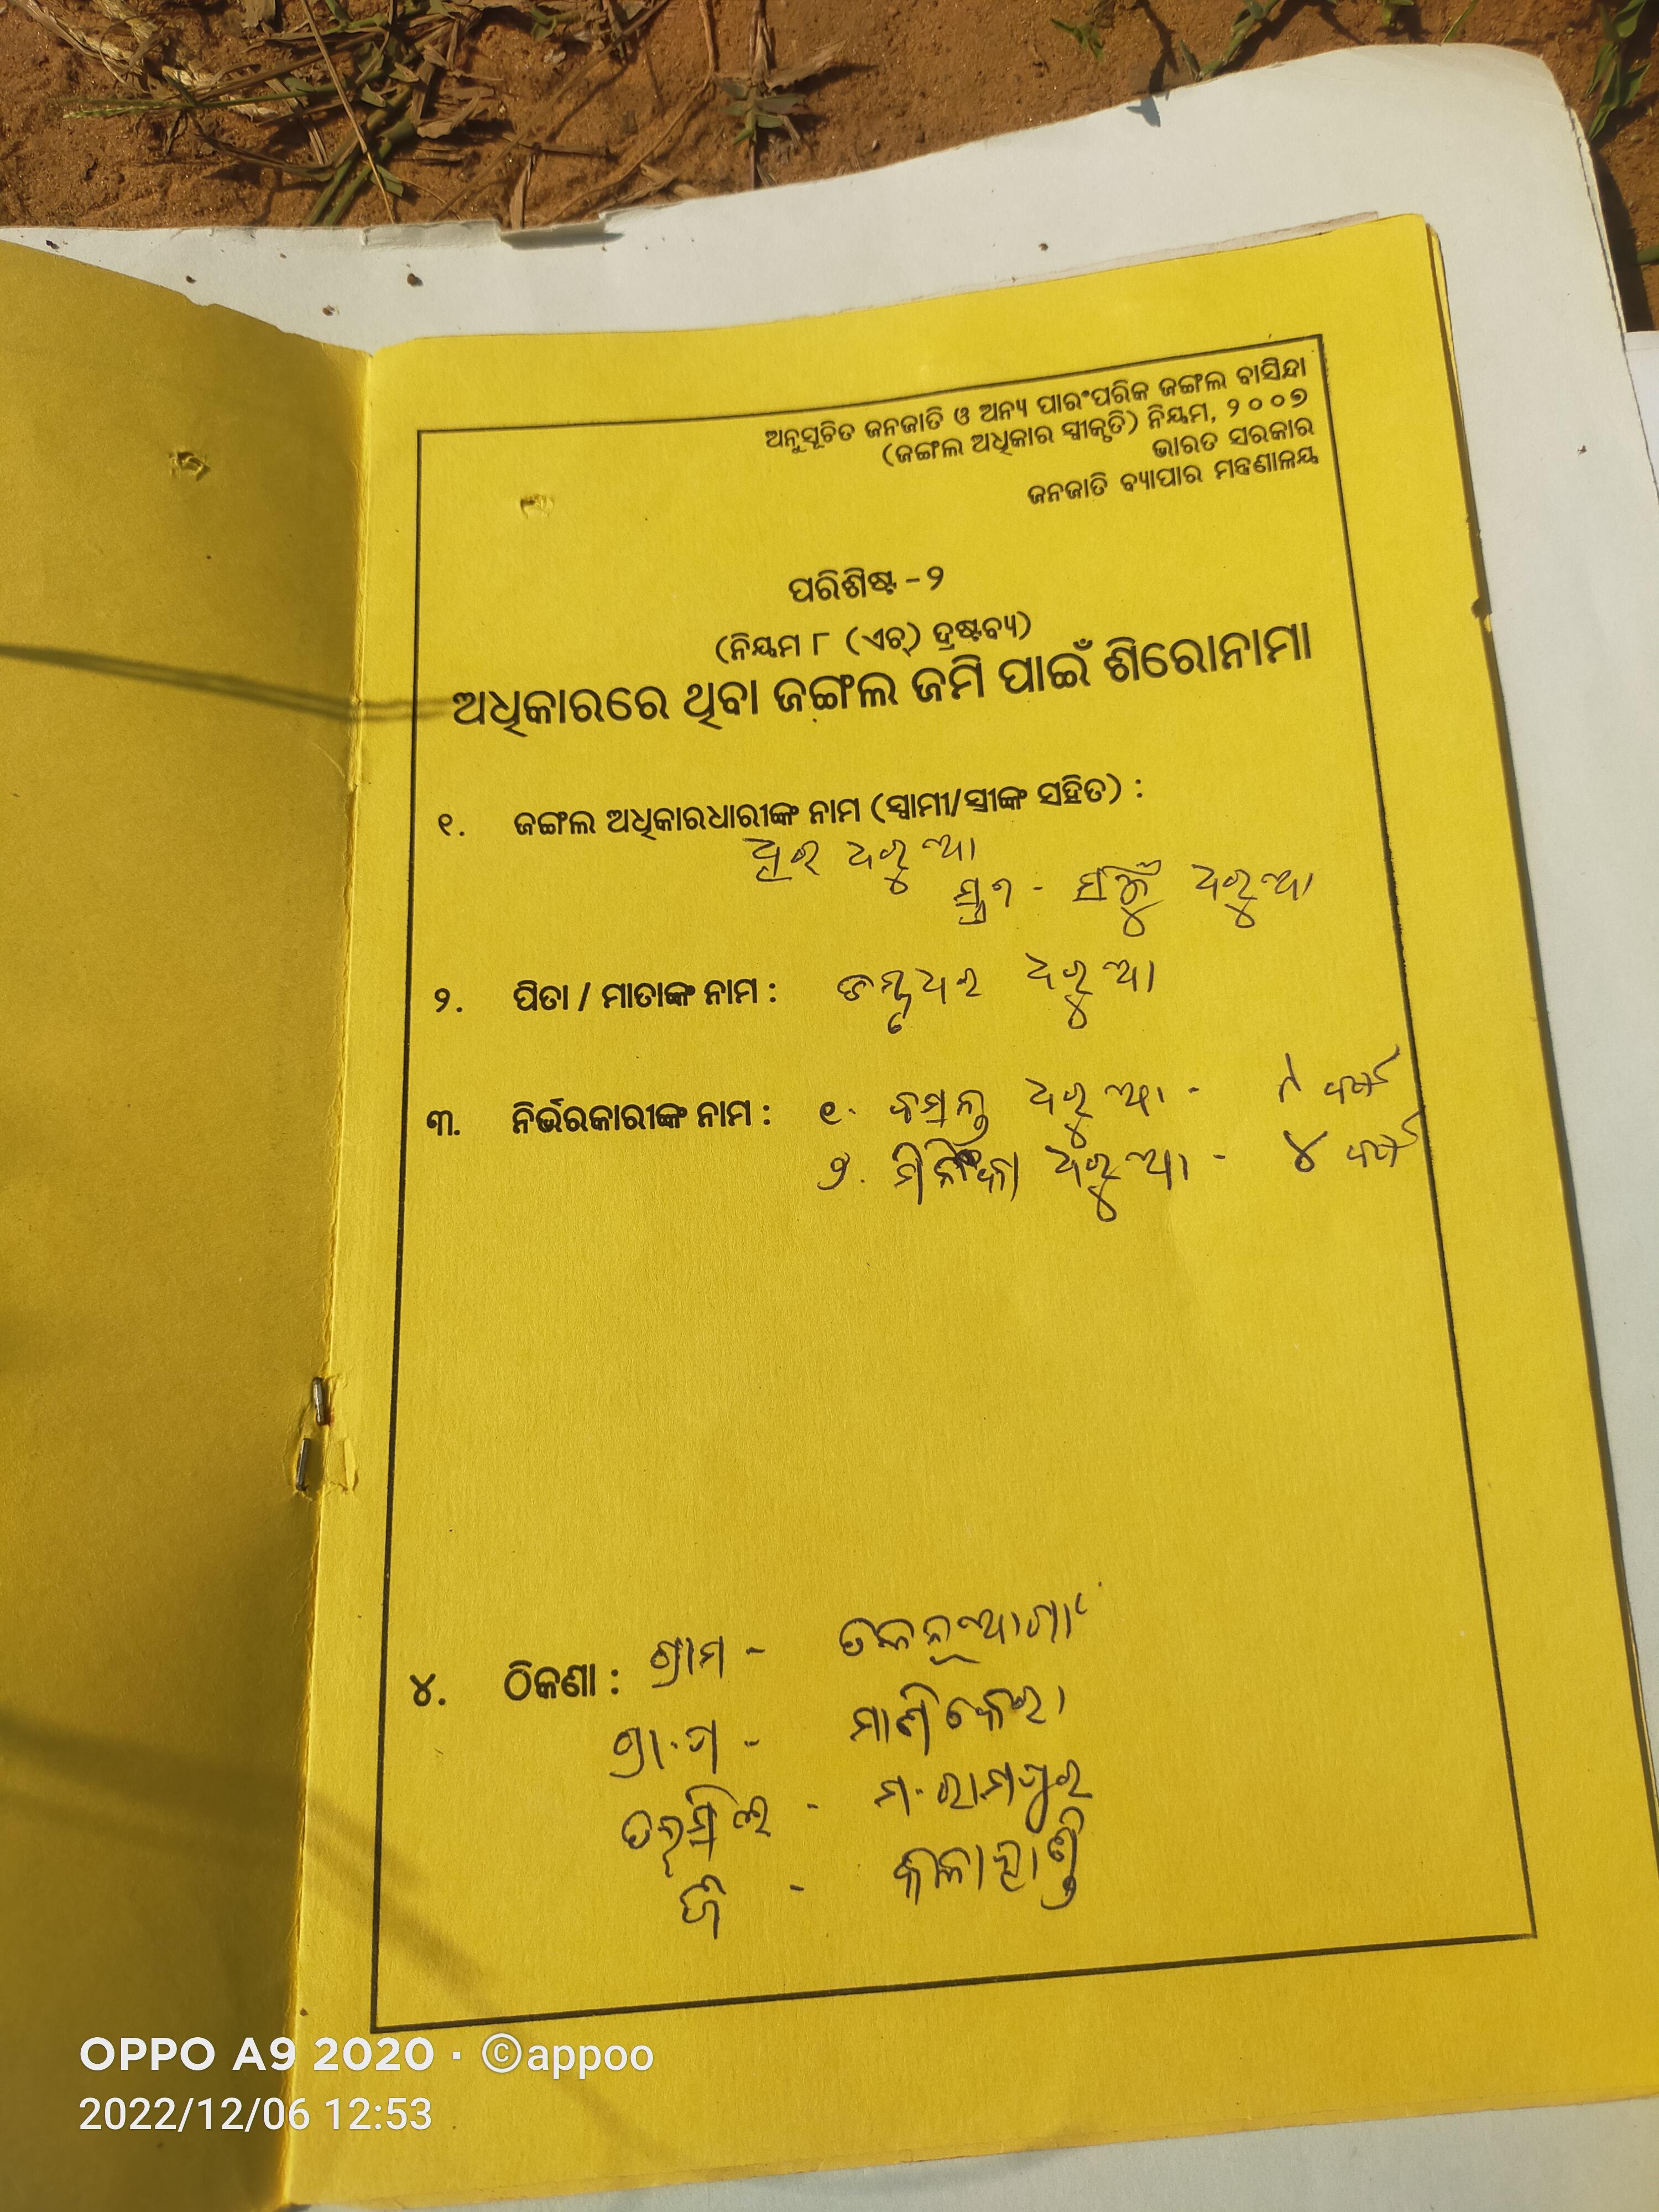 ଅନୁସୂଚିତ ଜନଜାତି ଓ ଅନ୍ୟ ପାରଂପରିକ ଜଙ୍ଗଲ ବାସିନ୍ଦା
(ଜଙ୍ଗଲ ଅଧିକାର ସ୍ୱୀକୃତି) ନିୟମ, ୨୦୦୭
ଭାରତ ସରକାର
ଜନଜାତି ବ୍ୟାପାର ମନ୍ତ୍ରଣାଳୟ
ପରିଶିଷ୍ଟ -୨
(ନିୟମ ୮ (ଏଚ୍) ଦ୍ରଷ୍ଟବ୍ୟ)
ଅଧିକାରରେ ଥିବା ଜଙ୍ଗଲ ଜମି ପାଇଁ ଶିରୋନାମା
୧. ଜଙ୍ଗଲ ଅଧିକାରଧାରୀଙ୍କ ନାମ (ସ୍ୱାମୀ/ସ୍ତ୍ରୀଙ୍କ ସହିତ) :
ଧରୁଆ
ସ୍ତ୍ରୀ - ଧରୁଆ
୨. ପିତା / ମାତାଙ୍କ ନାମ : ଧରୁଆ
୩. ନିର୍ଭରକାରୀଙ୍କ ନାମ : ୧. ବସନ୍ତ ଧରୁଆ - ବର୍ଷ
୨. ଧରୁଆ - ୪ ବର୍ଷ
୪. ଠିକଣା : ଗ୍ରାମ - ତଳନୂଆଗାଁ
ଗ୍ରା.ପ - ମାଣିକେରା
ତହସିଲ - ମ.ରାମପୁର
ଜି - କଳାହାଣ୍ଡି
OPPO A9 2020 · ©appoo
2022/12/06 12:53